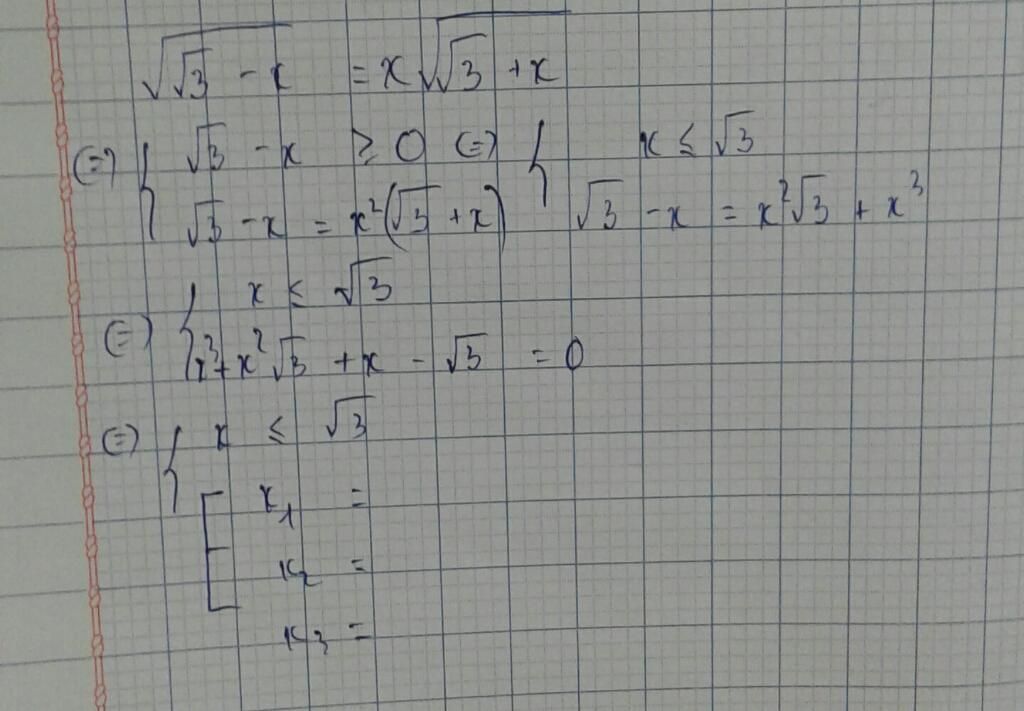 √(√3 - x) = x√(√3 + x)
(=) { √3 - x ≥ 0 (=) { x ≤ √3
√3 - x = x²(√3 + x) √3 - x = x²√3 + x³
(=) { x ≤ √3
x³ + x²√3 + x - √3 = 0
(=) { x ≤ √3
[ x₁ =
x₂ =
x₃ =